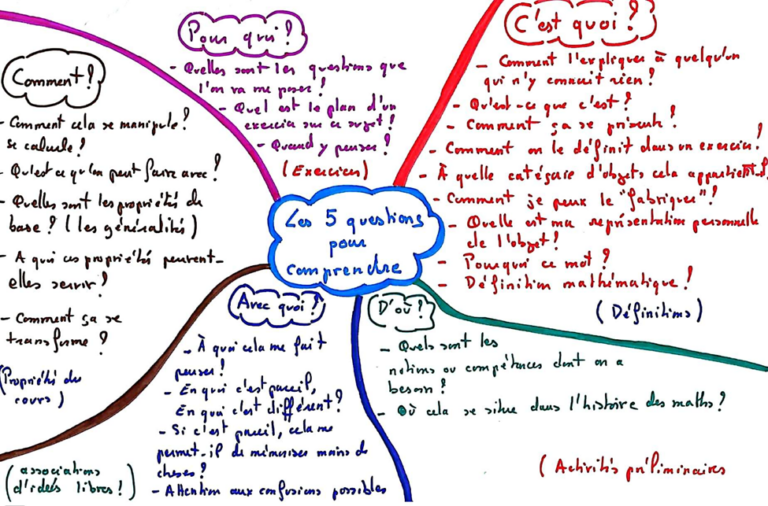 Les 5 questions
pour
comprendre
C'est quoi ?
- Comment l'expliquer à quelqu'un
qui n'y connait rien ?
- Qu'est-ce que c'est ?
- Comment ça se présente ?
- Comment on le définit dans un exercice ?
- À quelle catégorie d'objets cela appartient-il
- Comment je peux le "fabriquer" ?
- Quelle est ma représentation personnelle
de l'objet ?
- Pourquoi ce mot ?
- Définition mathématique ?
(Définitions)
D'où ?
- Quels sont les
notions ou compétences dont on a
besoin ?
- Où cela se situe dans l'histoire des maths ?
(Activités préliminaires
Avec quoi ?
- À quoi cela me fait
penser ?
- En quoi c'est pareil,
En quoi c'est différent ?
- Si c'est pareil, cela me
permet-il de mémoriser moins de
choses ?
- Attention aux confusions possibles
(associations
d'idées libres !)
Comment ?
- Comment cela se manipule ?
Se calcule ?
- Qu'est ce qu'on peut faire avec ?
- Quelles sont les propriétés de
base ? (les généralités)
- A quoi ces propriétés peuvent-
elles servir ?
- Comment ça se
transforme ?
(Propriétés du
cours)
Pour qui ?
- Quelles sont les questions que
l'on va me poser ?
- Quel est le plan d'un
exercice sur ce sujet ?
- Quand y penser ?
(Exercices)